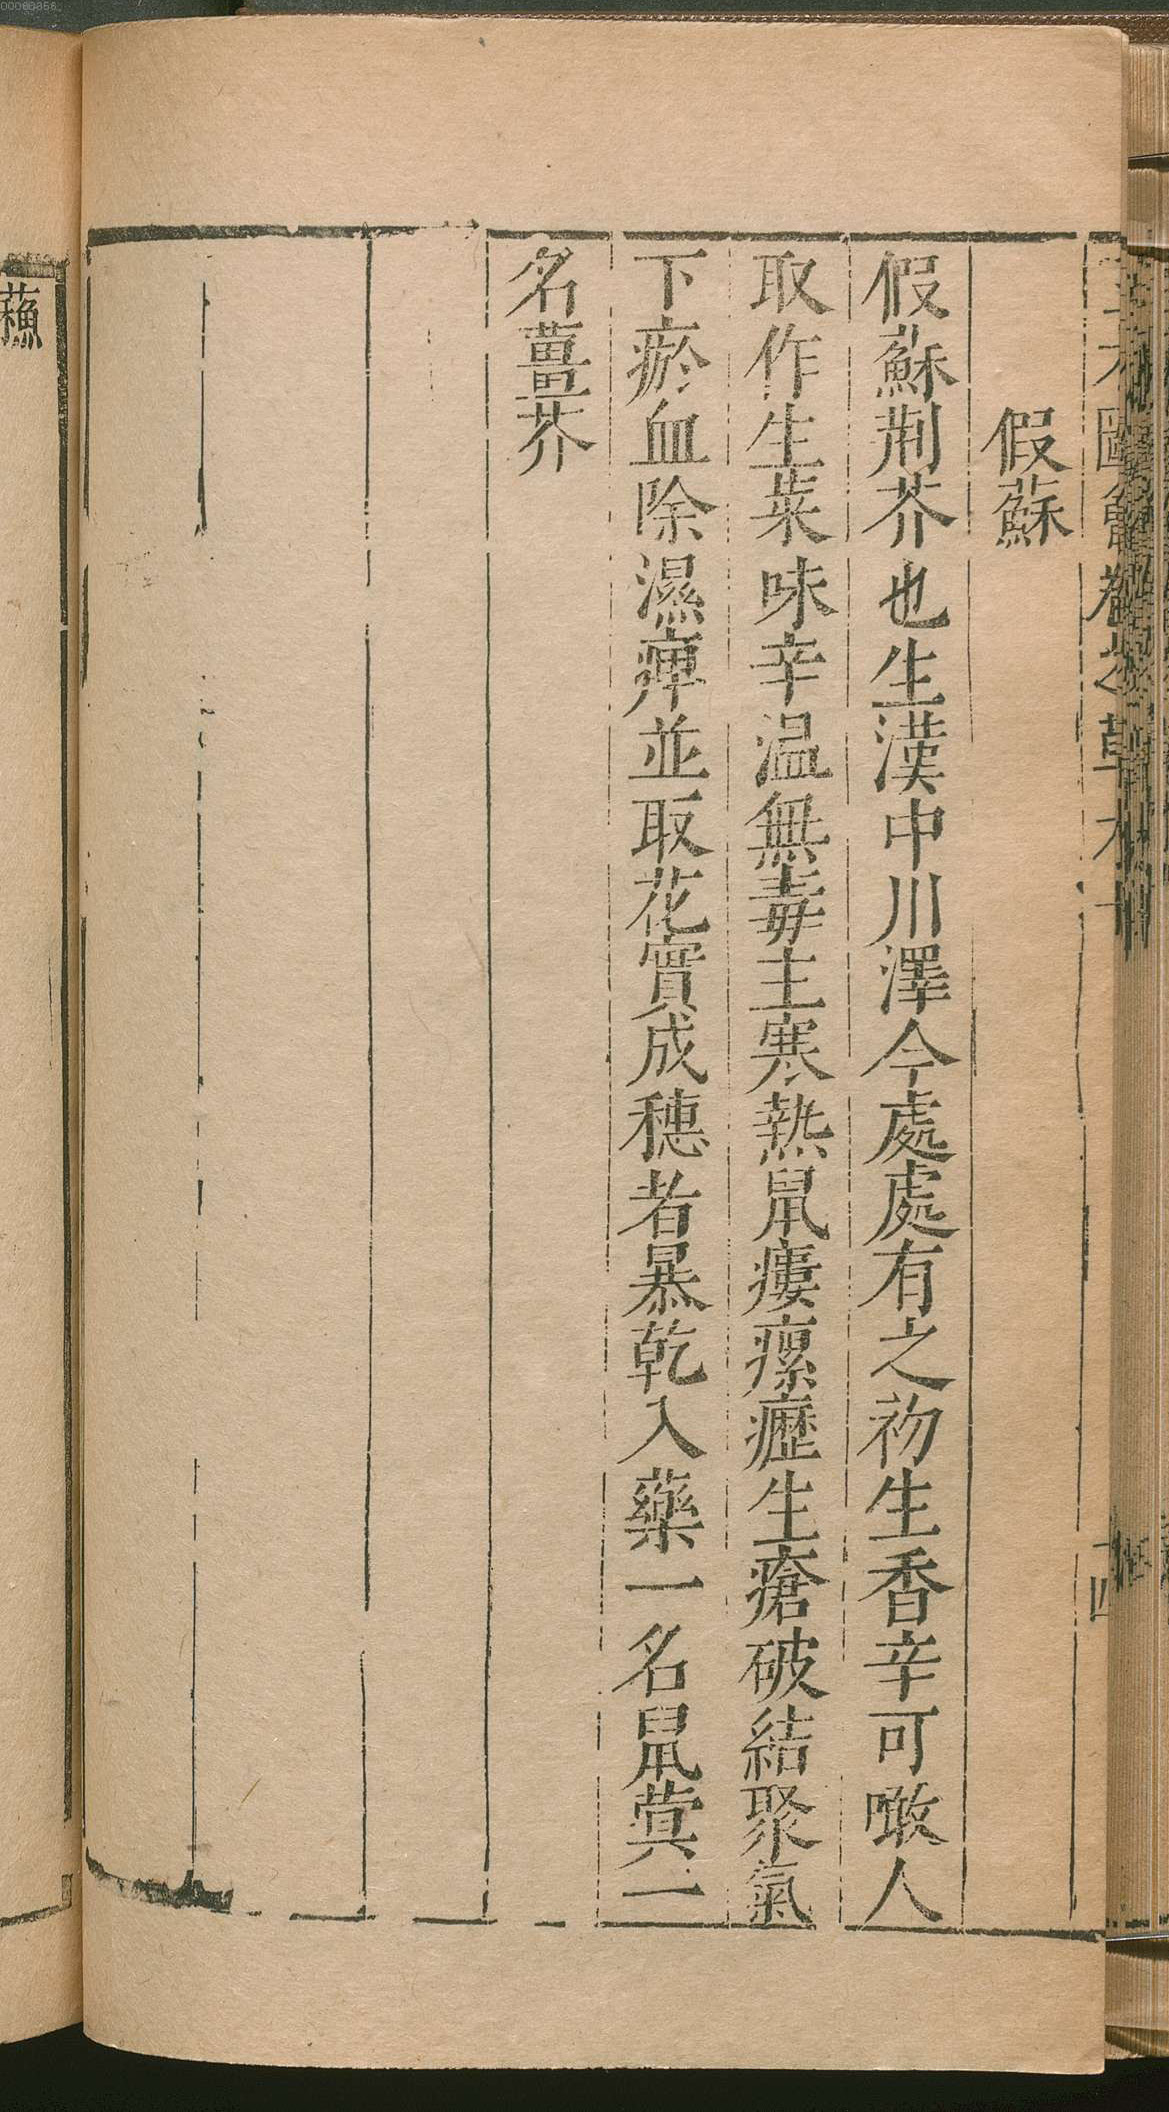 假蘇
假蘇荆芥也生漢中川澤今處處有之初生香辛可噉人
取作生菜味辛温無毒主寒熱鼠瘻瘰癧生瘡破結聚氣
下瘀血除濕痺並取花實成穗者暴乾入藥一名鼠蓂一
名薑芥
蘓